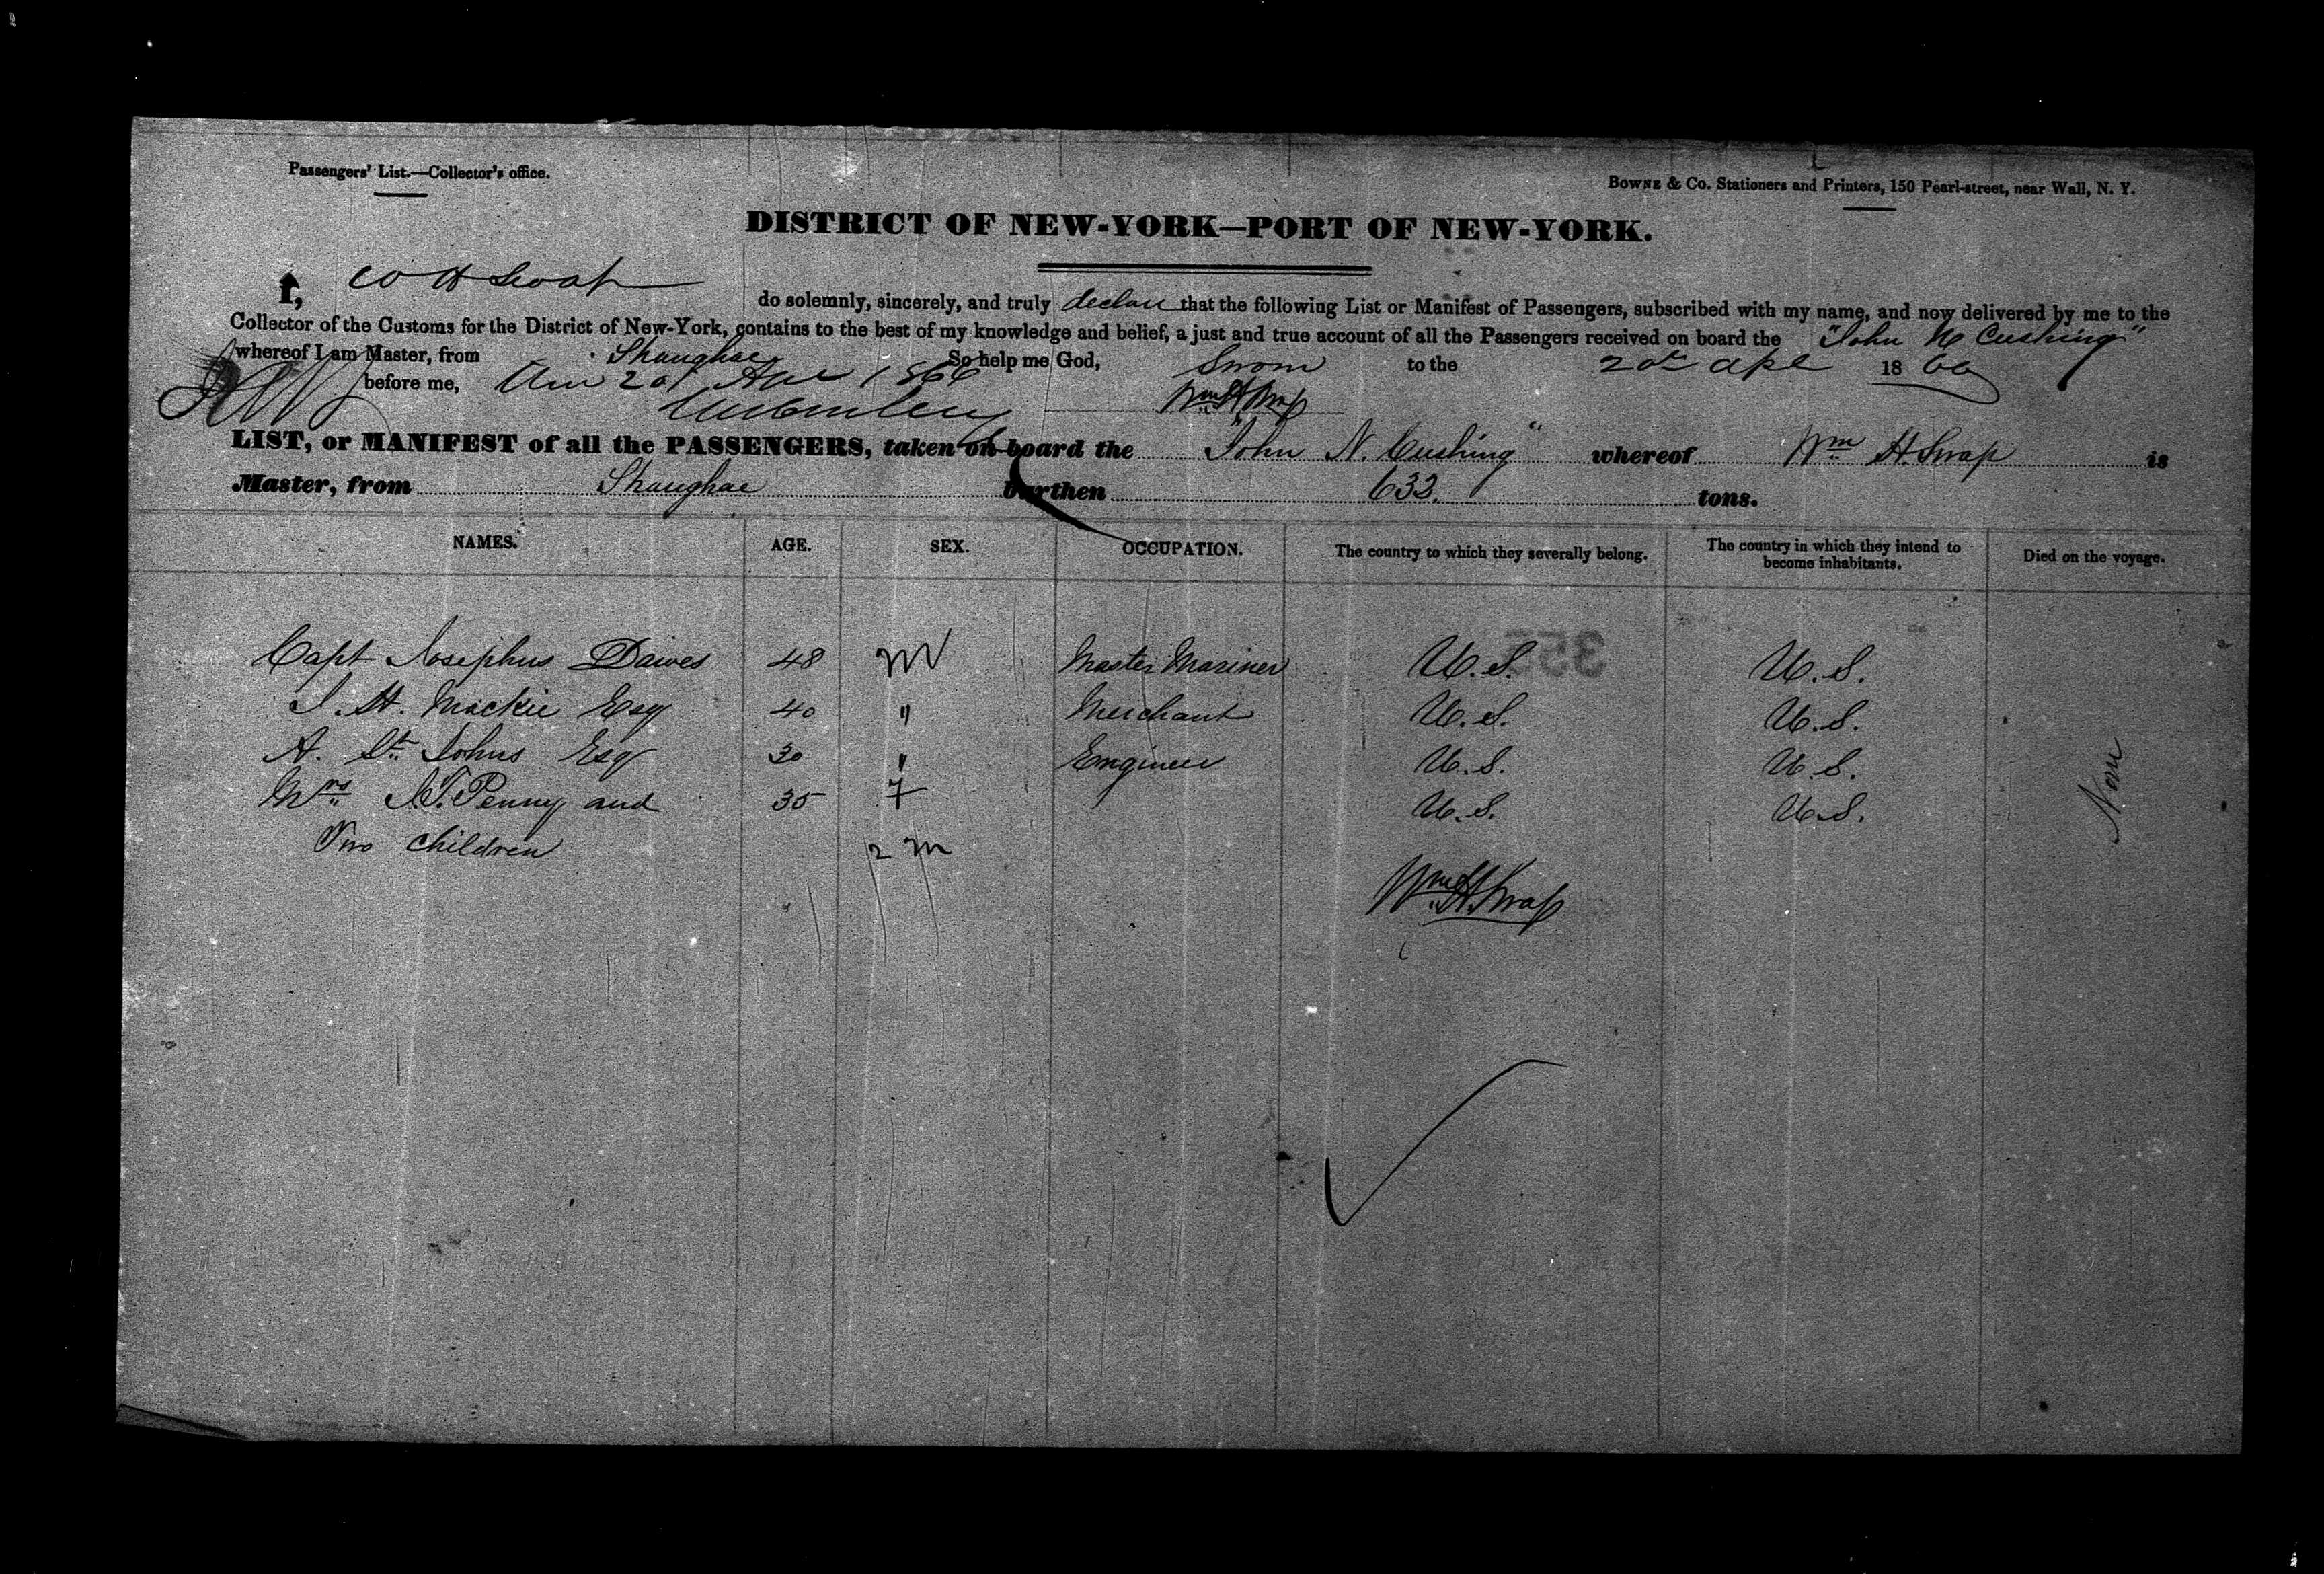 Passengers' List.—Collector's office.
BOWNE & Co. Stationers and Printers, 150 Pearl-street, near Wall, N. Y.
DISTRICT OF NEW-YORK—PORT OF NEW-YORK.
I, W H Swap do solemnly, sincerely, and truly declare that the following List or Manifest of Passengers, subscribed with my name, and now delivered by me to the
Collector of the Customs for the District of New-York, contains to the best of my knowledge and belief, a just and true account of all the Passengers received on board the "John N Cushing"
whereof I am Master, from Shanghae So help me God, Sworn to the 20th Apl 1866
before me, 20 Apr 1866 Wm H Swap
LIST, or MANIFEST of all the PASSENGERS, taken on board the "John N. Cushing" whereof Wm H. Swap is
Master, from Shanghae burthen 633. tons.
NAMES. AGE. SEX. OCCUPATION. The country to which they severally belong. The country in which they intend to become inhabitants. Died on the voyage.
355
Capt Josephus Dawes 48 M Master Mariner U.S. U.S.
J. H. Mackie Esq 40 " Merchant U.S. U.S.
A. St. Johns Esq 30 " Engineer U.S. U.S.
Mrs N. Penny and 35 F U.S. U.S.
Two children 2 M
None
Wm H. Swap